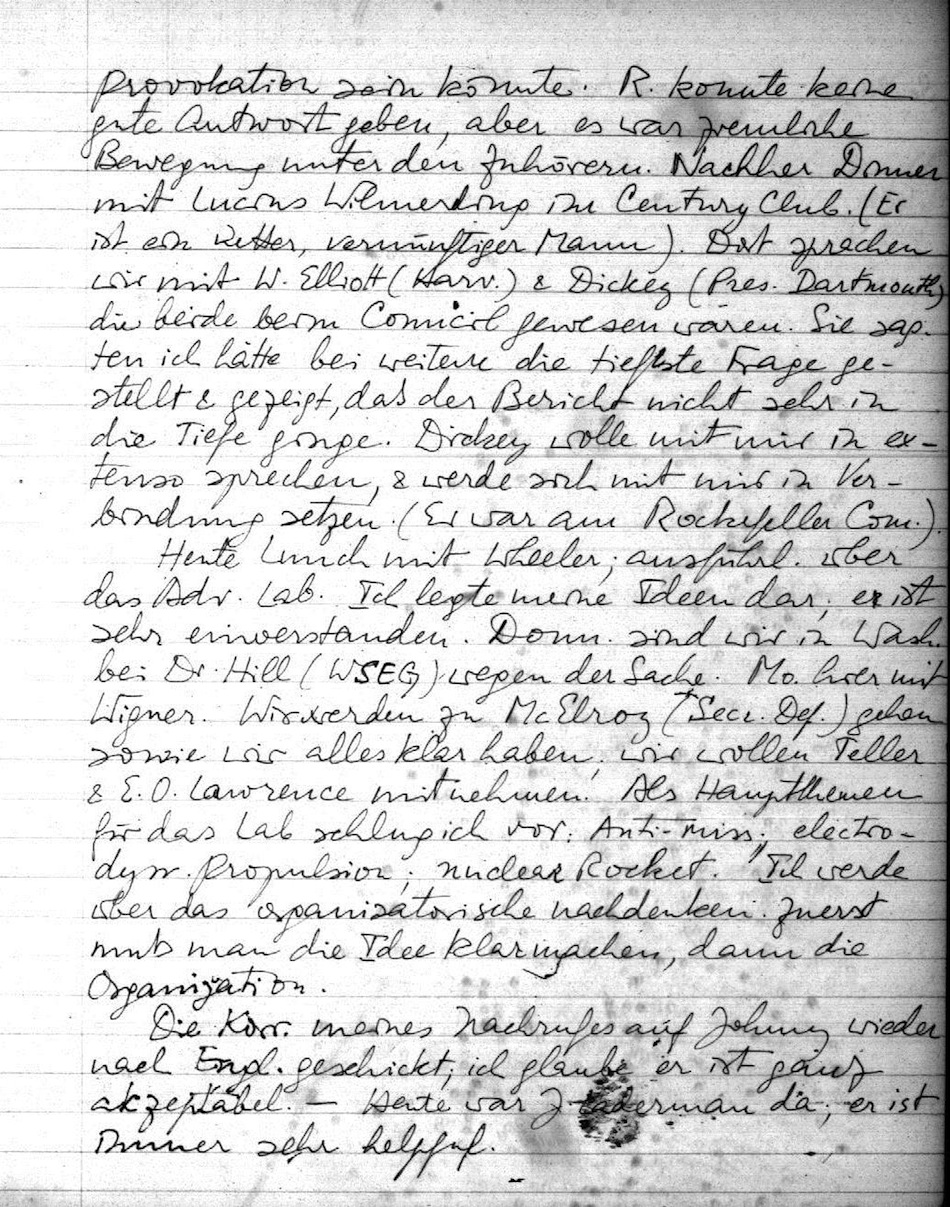 Provokation sein könnte. R. konnte keine
gute Antwort geben, aber es war ziemliche
Bewegung unter den Zuhörern. Nachher Dinner
mit Lucius Wilmerding im Century Club. (Er
ist ein netter, vernünftiger Mann). Dort sprachen
wir mit W. Elliott (Harv.) & Dickey (Pres. Dartmouth)
die beide beim Council gewesen waren. Sie sag-
ten ich hätte bei weitem die tiefste Frage ge-
stellt & gezeigt, daß der Bericht nicht sehr in
die Tiefe ginge. Dickey wolle mit mir in ex-
tenso sprechen, & werde sich mit mir in Ver-
bindung setzen. (Er war am Rockefeller Com.).
Heute Lunch mit Wheeler; ausführl. über
das Adv. Lab. Ich legte meine Ideen dar; er ist
sehr einverstanden. Donn. sind wir in Wash.
bei Dr. Hill (WSEG) wegen der Sache. Mo. hier mit
Wigner. Wir werden zu McElroy (Secr. Def.) gehen
sowie wir alles klar haben; wir wollen Teller
& E.O. Lawrence mitnehmen. Als Hauptthemen
für das Lab schlug ich vor: Anti-miss; electro-
dyn. propulsion; nuclear Rocket. Ich werde
über das organisatorische nachdenken. Zuerst
muß man die Idee klarmachen, dann die
Organization.
Die Korr. meines Nachrufes auf Johnny wieder
nach Engl. geschickt; ich glaube er ist ganz
akzeptabel. – Heute war da; er ist
immer sehr helpful.